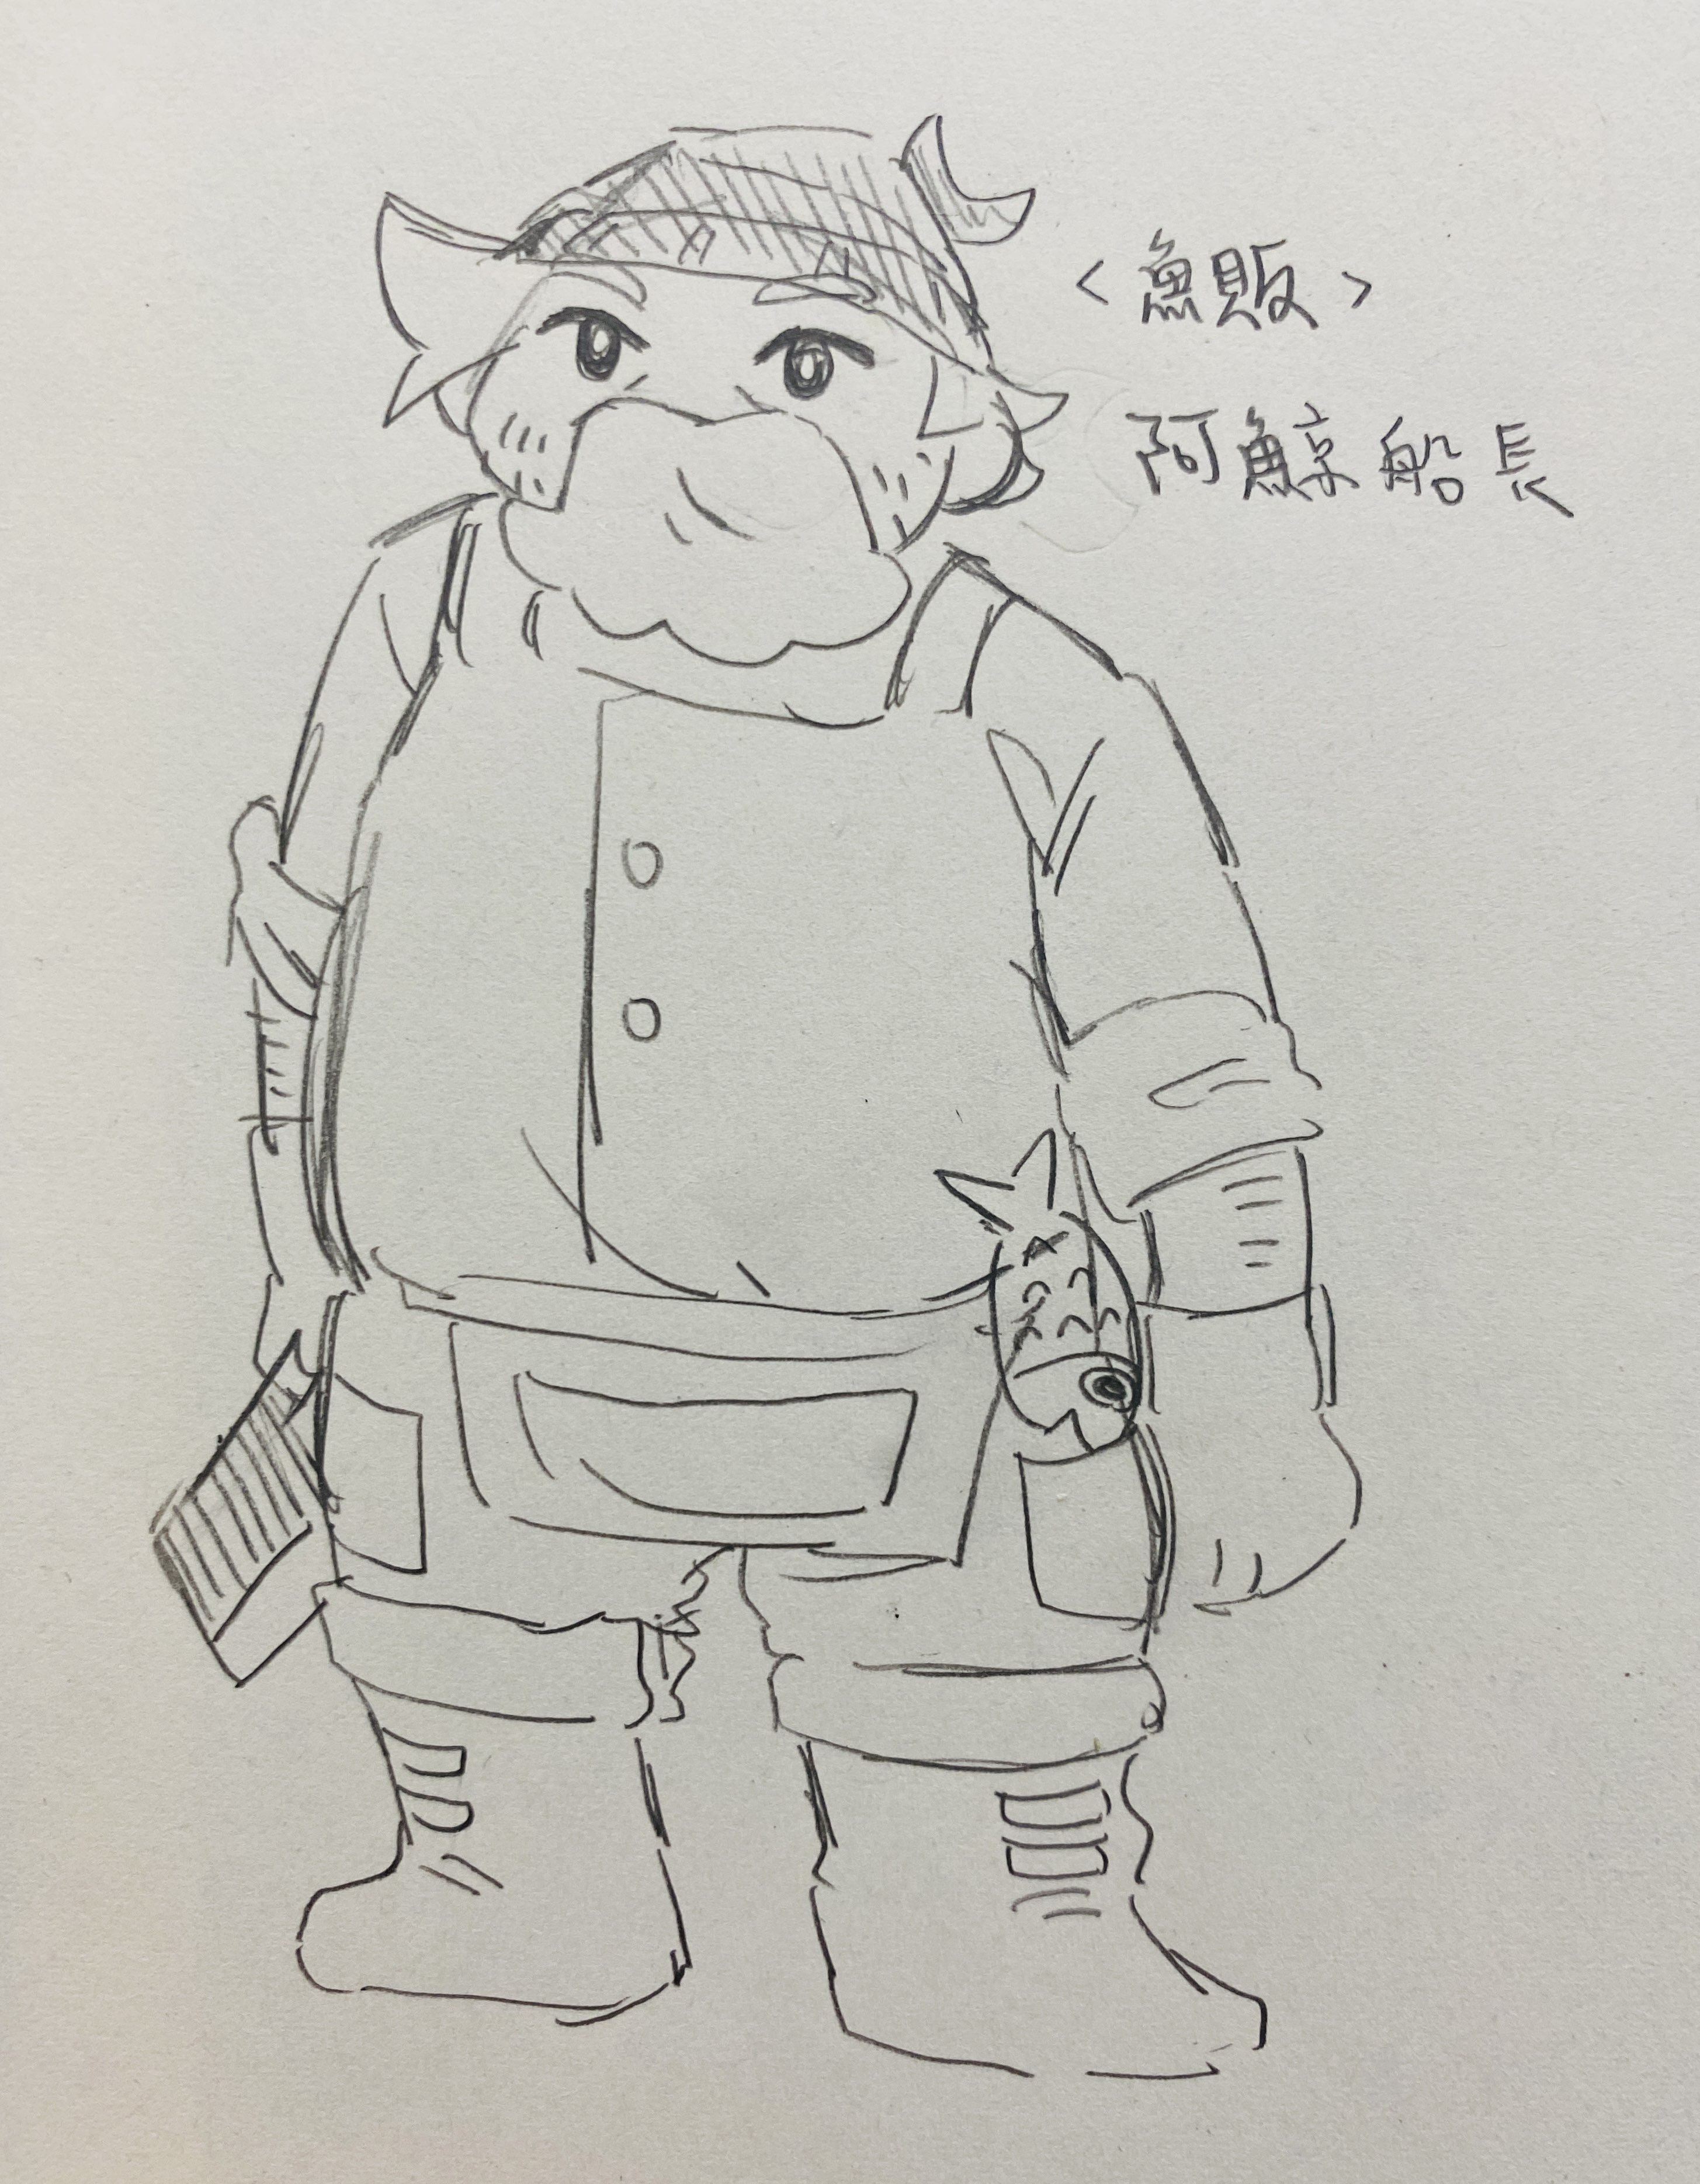 <魚販>
阿鯨船長